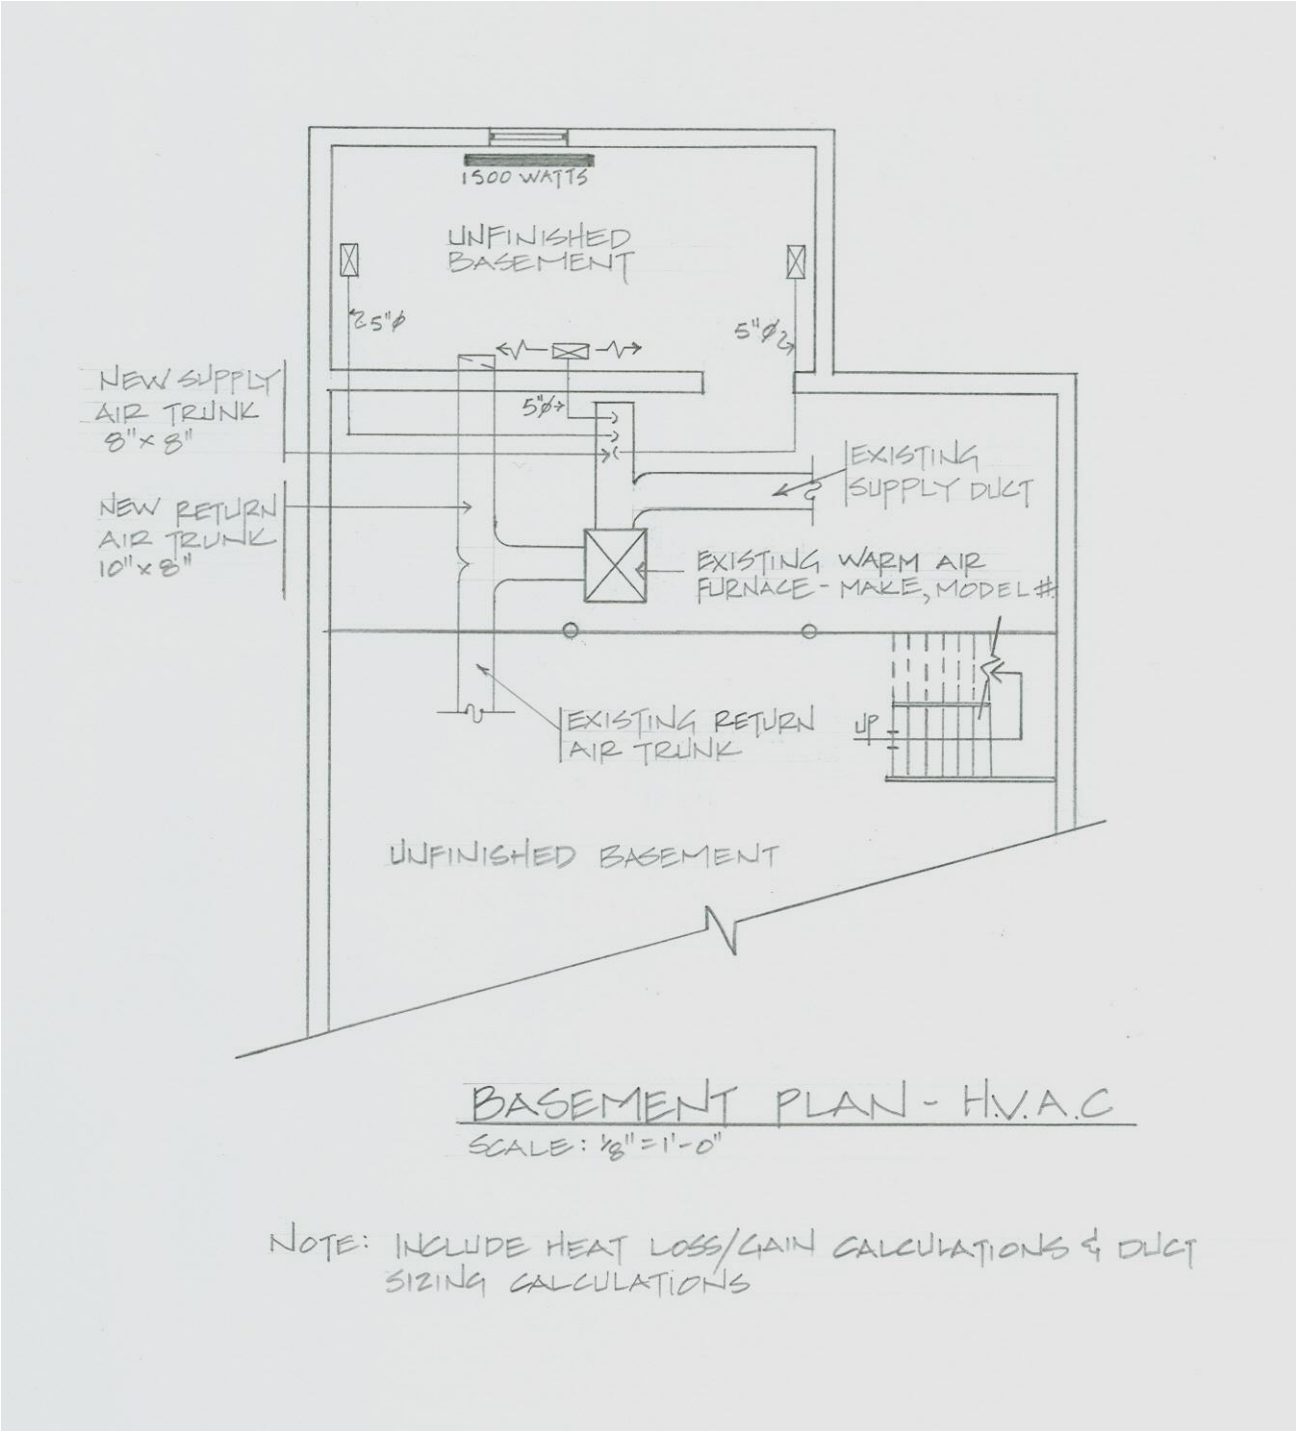 1500 WATTS
UNFINISHED
BASEMENT
5"ø
5"ø
5"ø
NEW SUPPLY
AIR TRUNK
8" x 8"
EXISTING
SUPPLY DUCT
NEW RETURN
AIR TRUNK
10" x 8"
EXISTING WARM AIR
FURNACE - MAKE, MODEL #
EXISTING RETURN
AIR TRUNK
UP
UNFINISHED BASEMENT
BASEMENT PLAN - H.V.A.C
SCALE: 1/8" = 1'-0"
NOTE: INCLUDE HEAT LOSS/GAIN CALCULATIONS & DUCT
SIZING CALCULATIONS